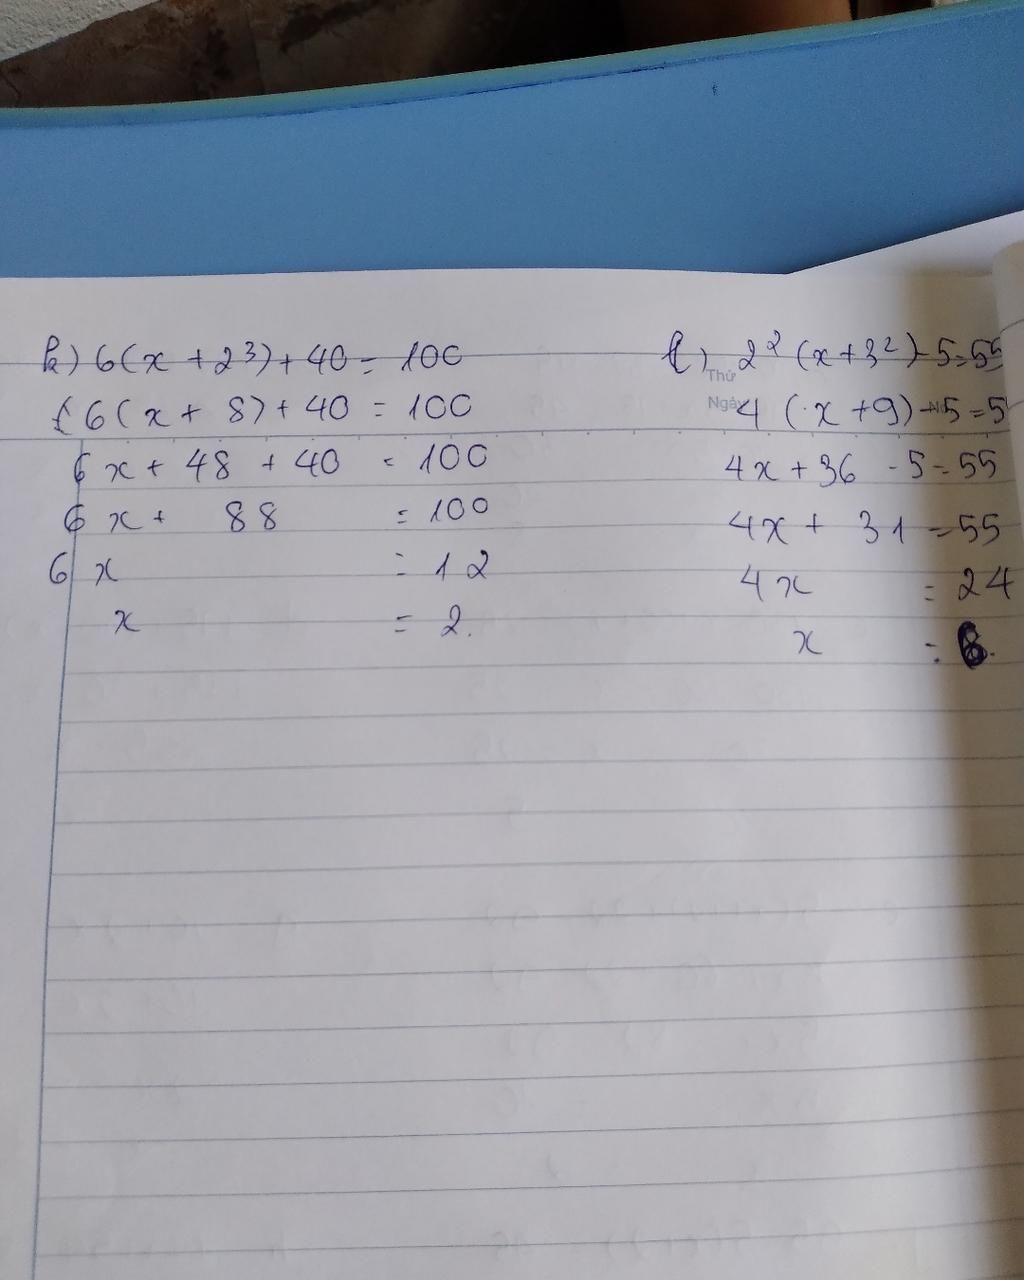 k) 6(x + 2³) + 40 = 100
6(x + 8) + 40 = 100
6x + 48 + 40 = 100
6x + 88 = 100
6x = 12
x = 2.
l) 2² (x + 3²) - 5 = 55
Thứ
Ngày
4 (x + 9) - 5 = 5
4x + 36 - 5 = 55
4x + 31 = 55
4x = 24
x = 6.